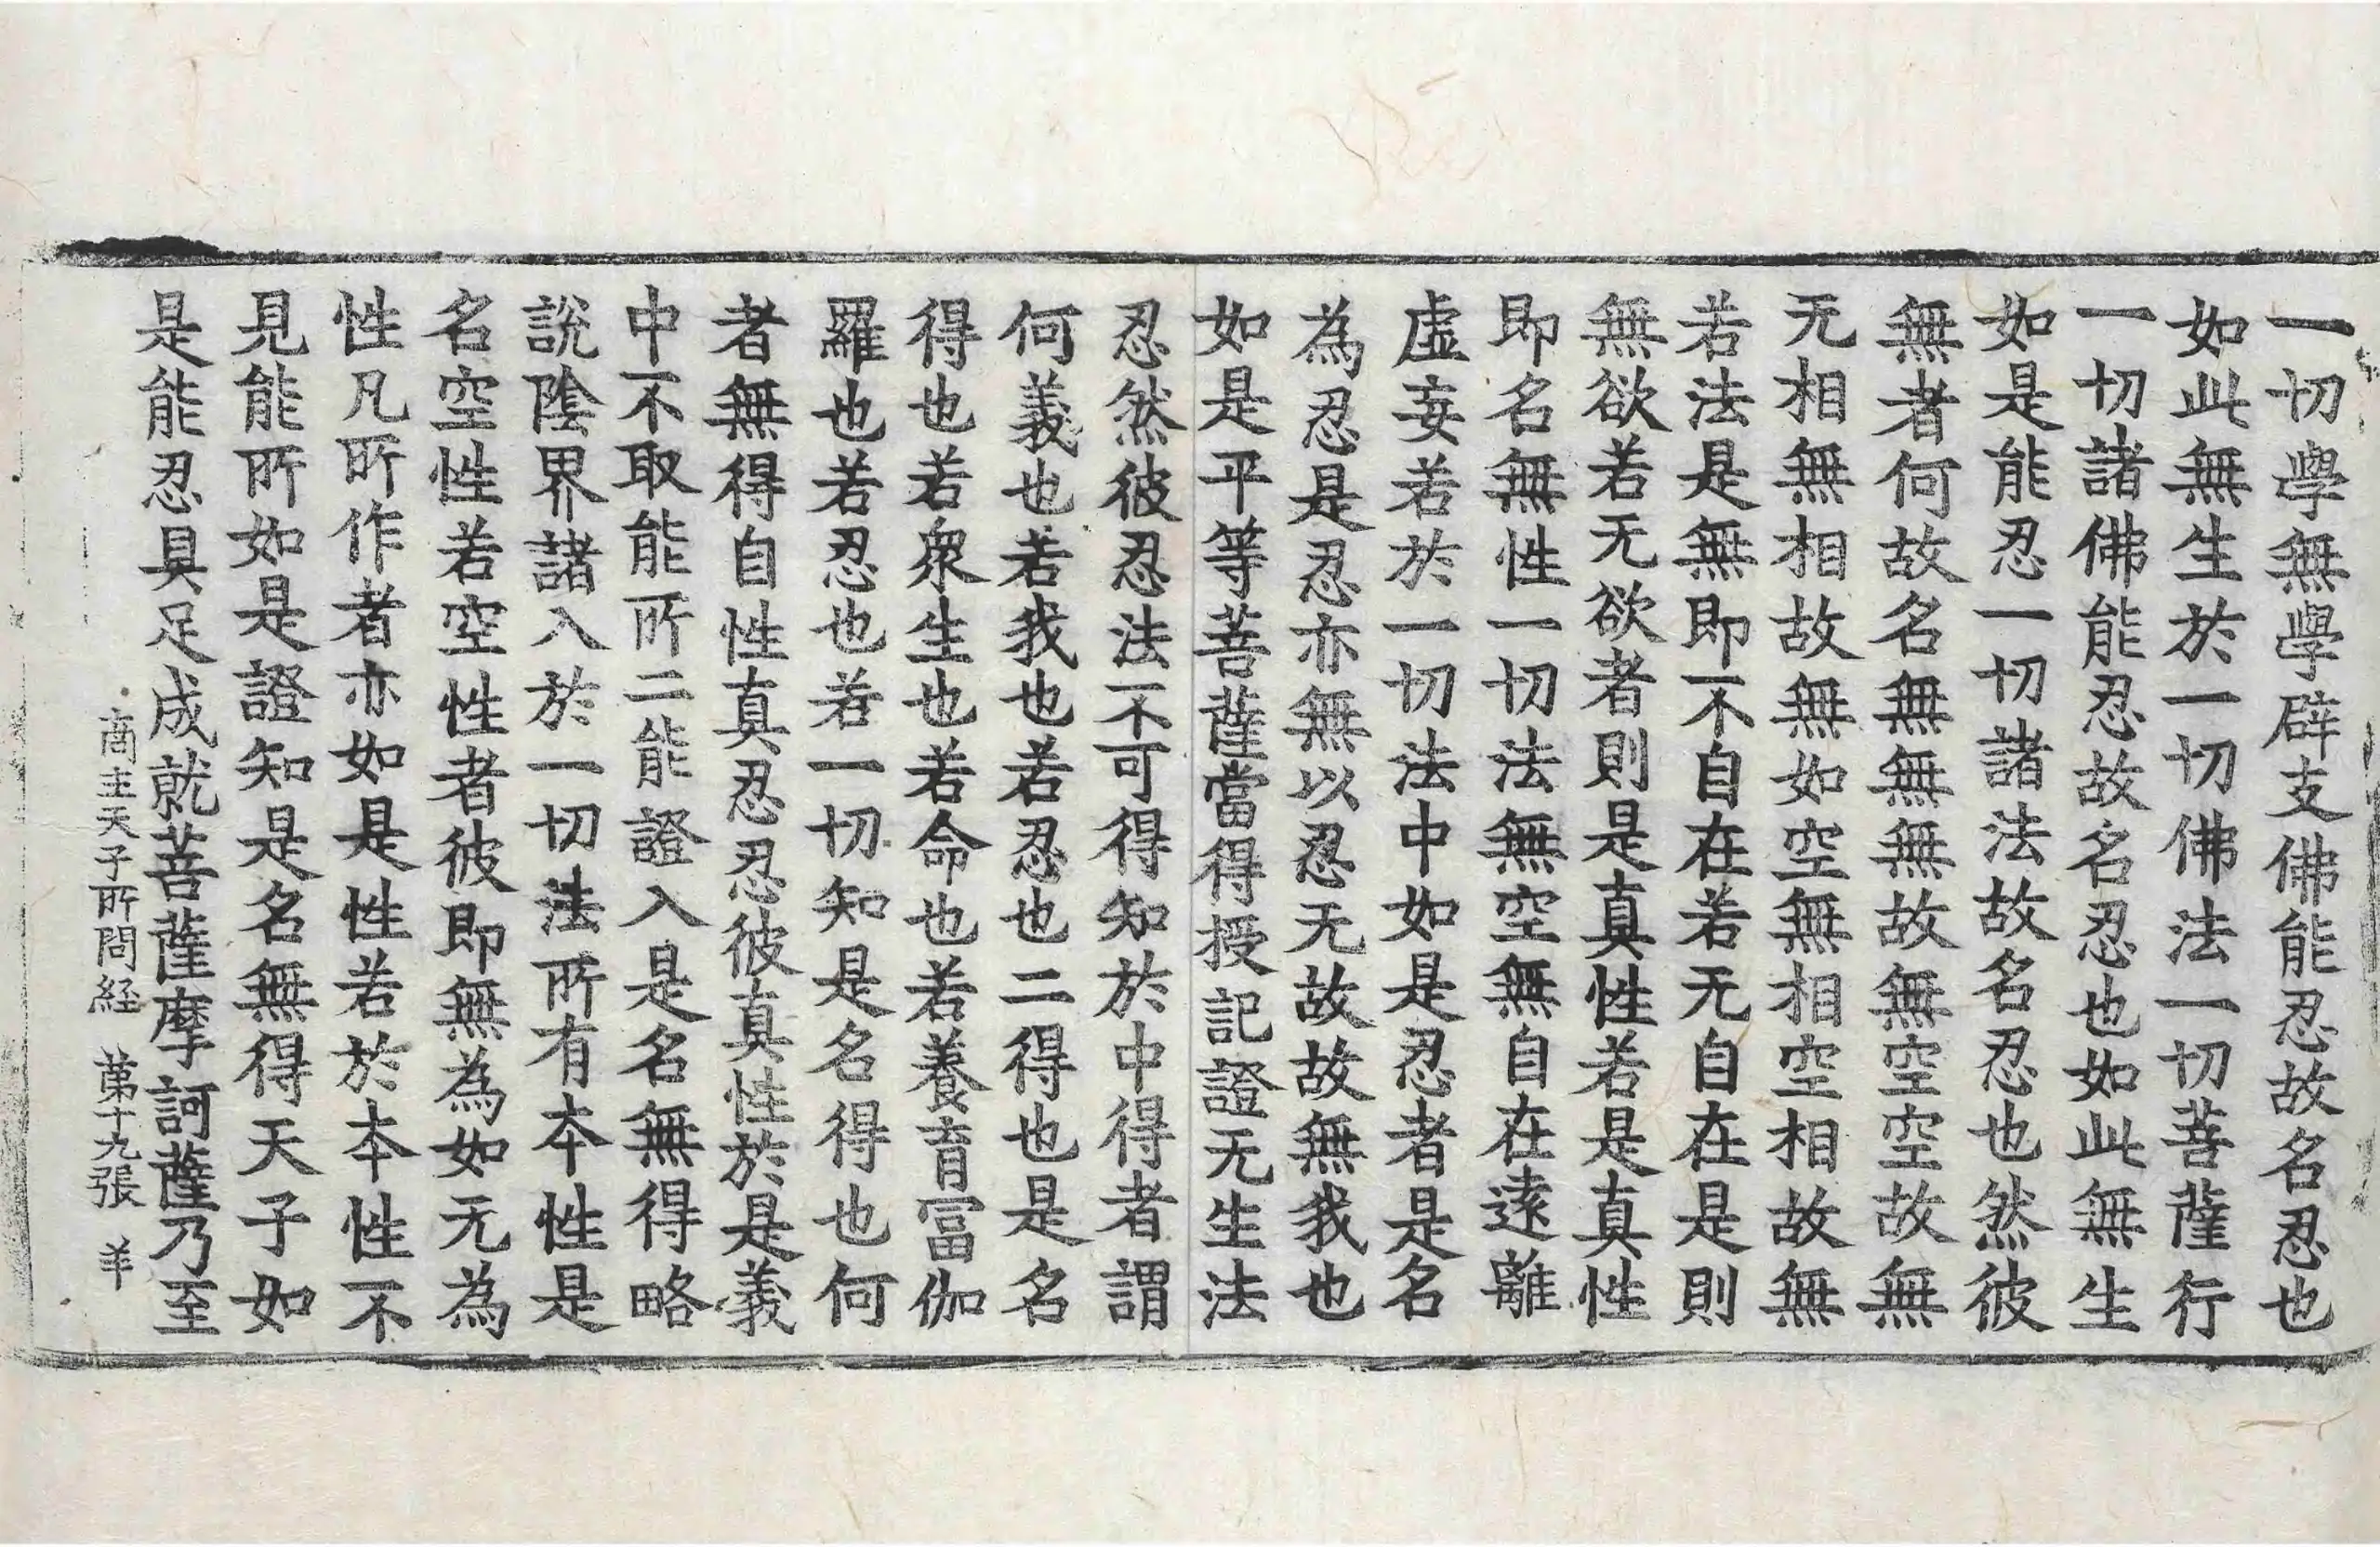 一切學無學辟支佛能忍故名忍也
如此無生於一切佛法一切菩薩行
一切諸佛能忍故名忍也如此無生
如是能忍一切諸法故名忍也然彼
無者何故名無無無故無空空故無
无相無相故無如空無相空相故無
若法是無即不自在若无自在是則
無欲若无欲者則是真性若是真性
即名無性一切法無空無自在遠離
虛妄若於一切法中如是忍者是名
為忍是忍亦無以忍无故故無我也
如是平等菩薩當得授記證无生法
忍然彼忍法不可得知於中得者謂
何義也若我也若忍也二得也是名
得也若衆生也若命也若養育冨伽
羅也若忍也若一切知是名得也何
者無得自性真忍忍彼真性於是義
中不取能所二能證入是名無得略
說陰界諸入於一切法所有本性是
名空性若空性者彼即無為如无為
性凡所作者亦如是性若於本性不
見能所如是證知是名無得天子如
是能忍具足成就菩薩摩訶薩乃至
商主天子所問経　第十九張　羊